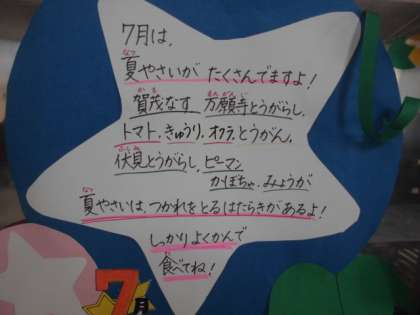 7月は、
夏やさいが たくさんでますよ!
賀茂なす 万願寺とうがらし、
トマト、きゅうり、オクラ、とうがん、
伏見とうがらし、ピーマン
かぼちゃ、みょうが
夏やさいは、つかれをとるはたらきがあるよ!
しっかりよくかんで
食べてね!
7月